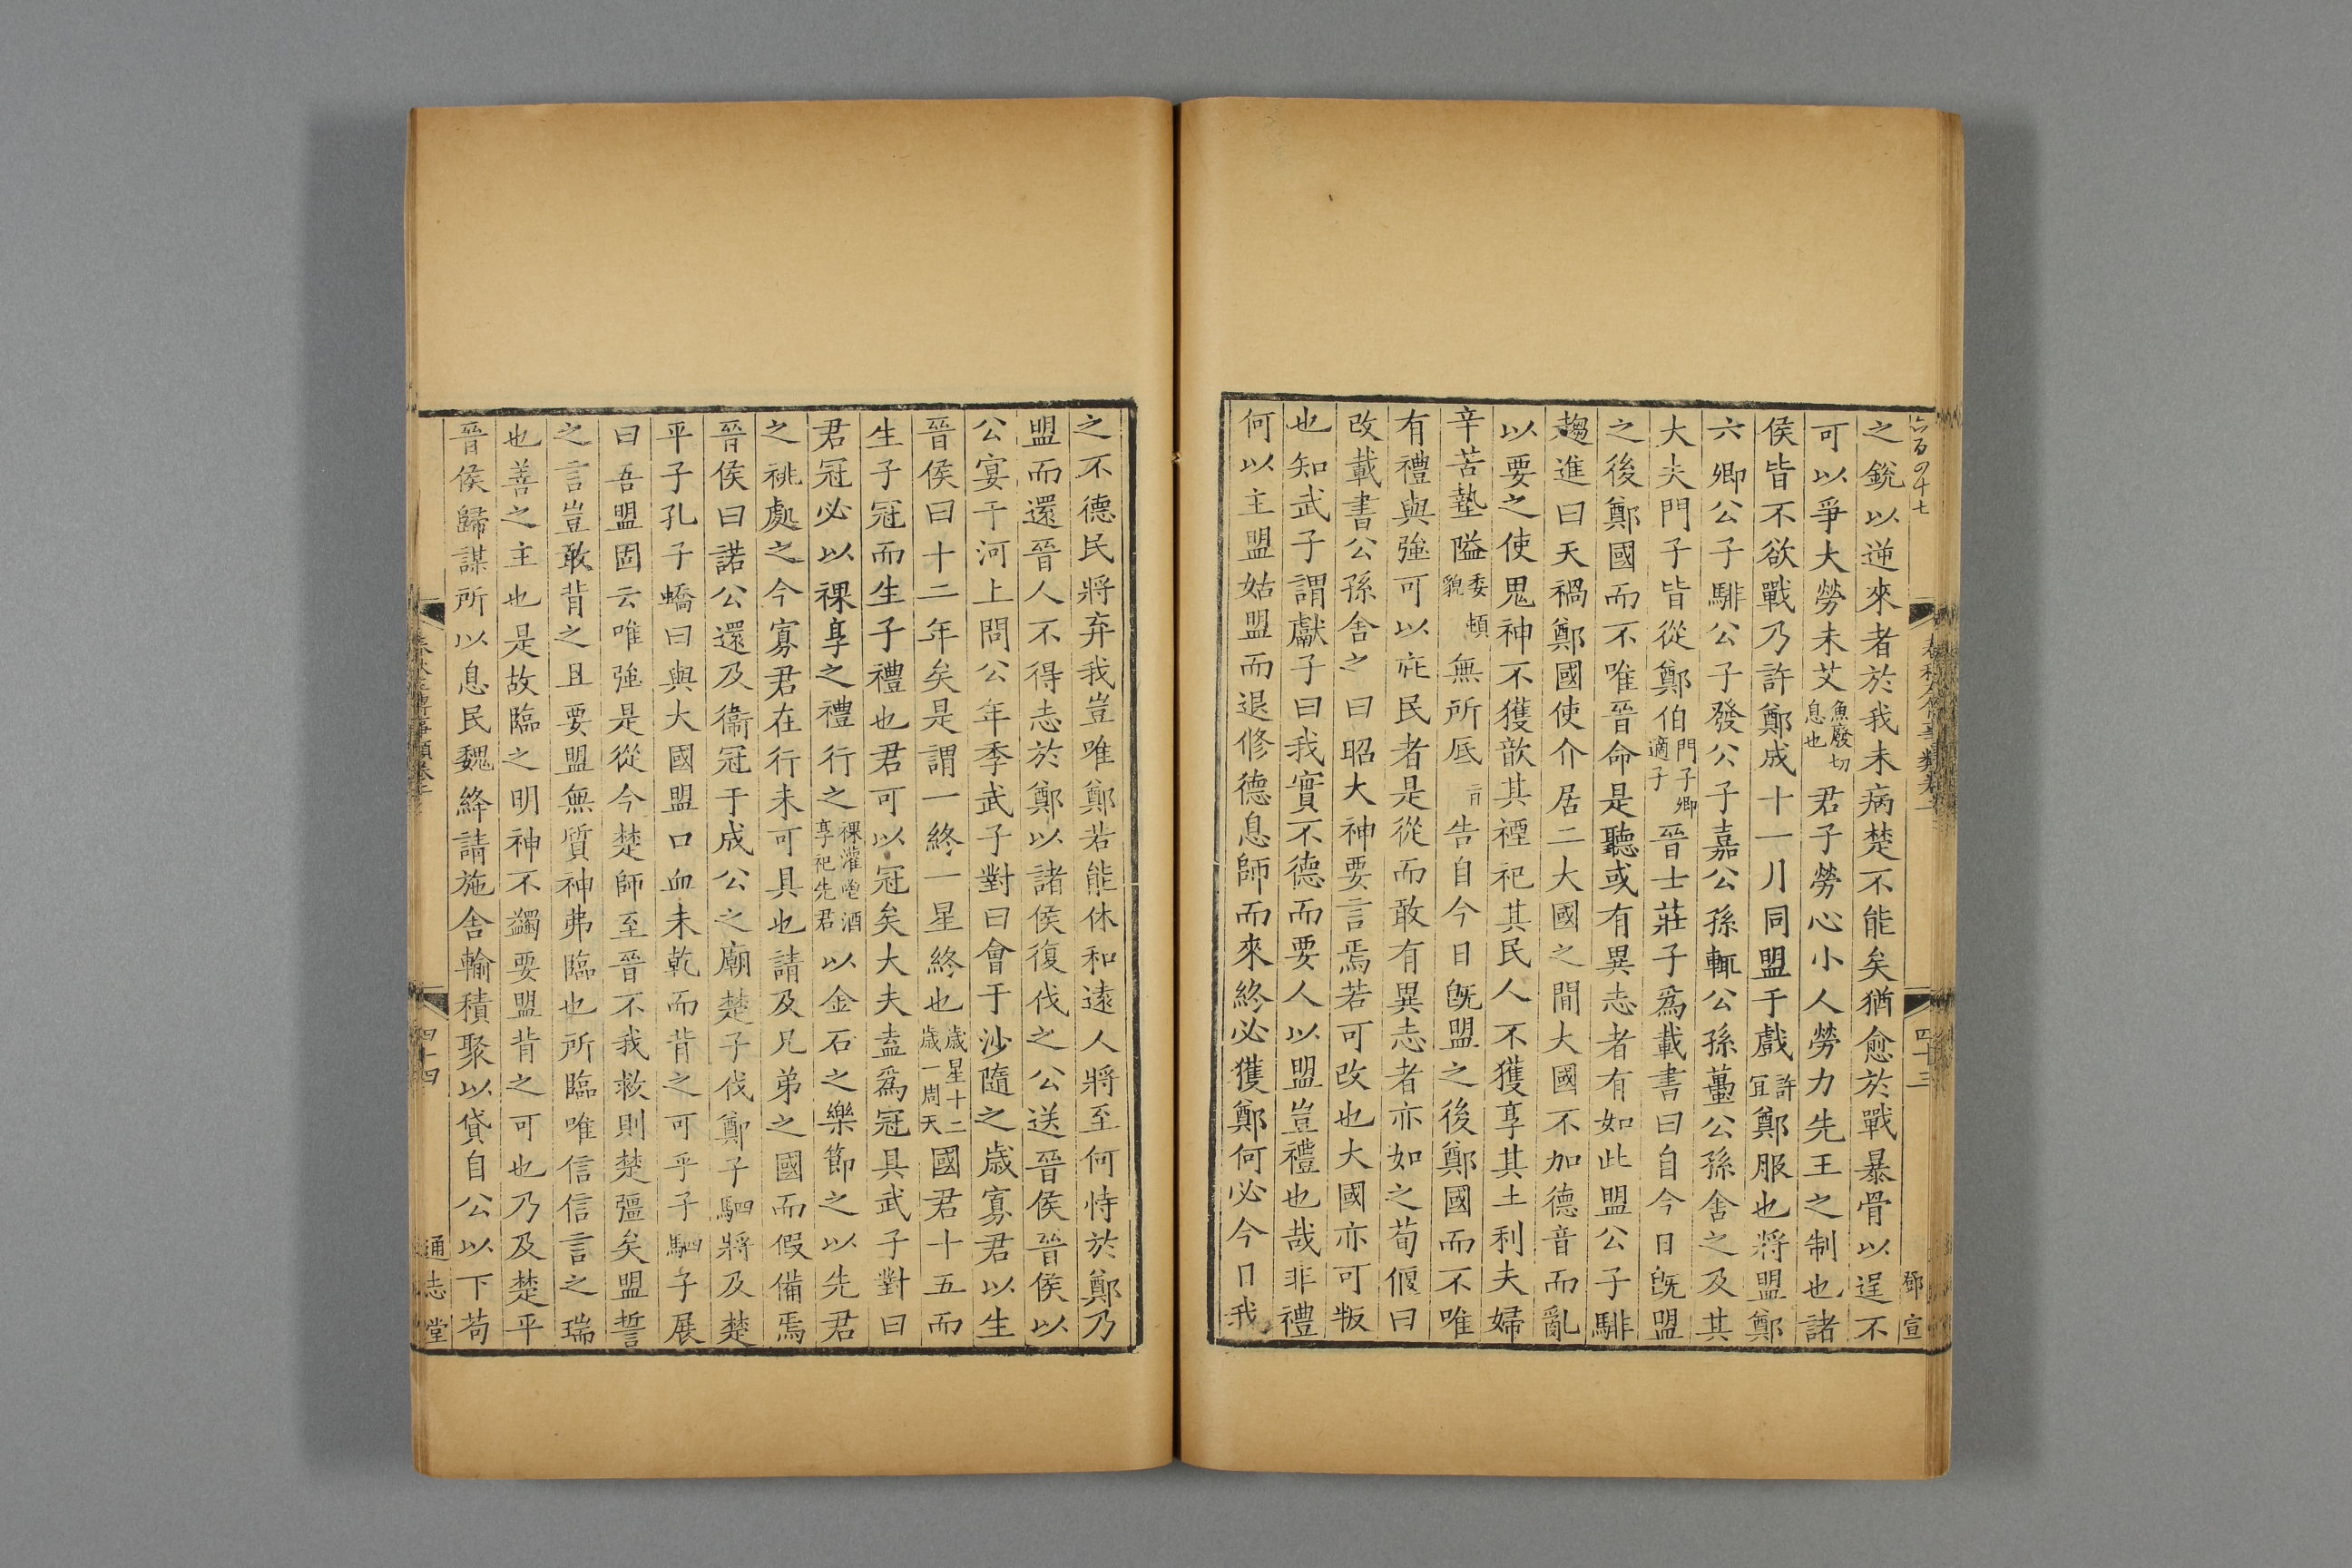 之銳以逆來者於我未病楚不能矣猶愈於戰暴骨以逞不
可以爭大勞未艾魚廢切息也君子勞心小人勞力先王之制也諸
侯皆不欲戰乃許鄭成十一月同盟于戲許宜鄭服也將盟鄭
六卿公子騑公子發公子嘉公孫輒公孫蠆公孫舍之及其
大夫門子皆從鄭伯門子卿適子晉士莊子爲載書曰自今日旣盟
之後鄭國而不唯晉命是聽或有異志者有如此盟公子騑
趨進曰天禍鄭國使介居二大國之閒大國不加德音而亂
以要之使鬼神不獲歆其禋祀其民人不獲享其土利夫婦
辛苦墊隘委頓貌無所底告自今日旣盟之後鄭國而不唯
有禮與強可以庇民者是從而敢有異志者亦如之荀偃曰
改載書公孫舍之曰昭大神要言焉若可改也大國亦可叛
也知武子謂獻子曰我實不德而要人以盟豈禮也哉非禮
何以主盟姑盟而退修德息師而來終必獲鄭何必今日我
四十三
鄧宣
之不德民將弃我豈唯鄭若能休和遠人將至何恃於鄭乃
盟而還晉人不得志於鄭以諸侯復伐之公送晉侯晉侯以
公宴于河上問公年季武子對曰會于沙隨之歲寡君以生
晉侯曰十二年矣是謂一終一星終也歲星十二歲一周天國君十五而
生子冠而生子禮也君可以冠矣大夫盍爲冠具武子對曰
君冠必以祼享之禮行之祼灌鬯酒享祀先君以金石之樂節之以先君
之祧處之今寡君在行未可具也請及兄弟之國而假備焉
晉侯曰諾公還及衞冠于成公之廟楚子伐鄭子駟將及楚
平子孔子蟜曰與大國盟口血未乾而背之可乎子駟子展
曰吾盟固云唯強是從今楚師至晉不我救則楚彊矣盟誓
之言豈敢背之且要盟無質神弗臨也所臨唯信信言之瑞
也善之主也是故臨之明神不蠲要盟背之可也乃及楚平
晉侯歸謀所以息民魏絳請施舍輸積聚以貸自公以下苟
四十四
通志堂